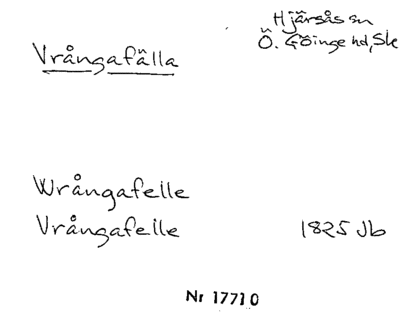 Hjärsås sn
Ö. Göinge hd, Sk
Vrångafälla
Wrångafelle
Vrångafelle 1825 Jb
Nr 17710